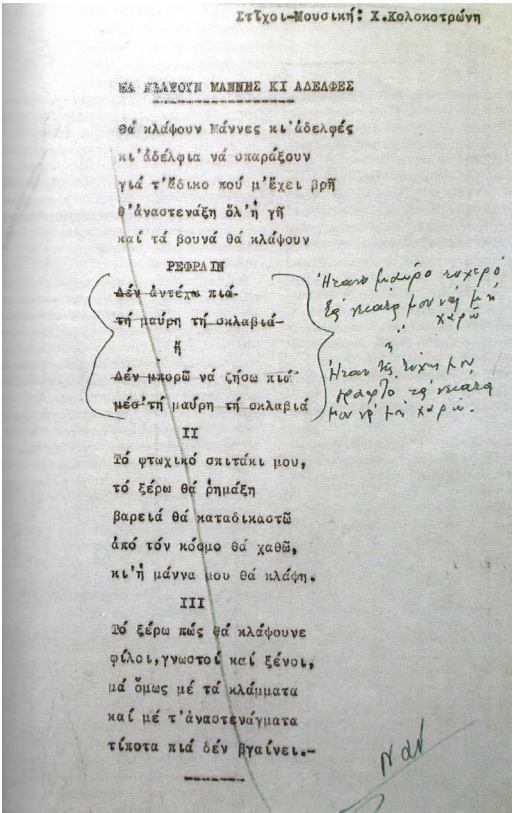 Στίχοι-Μουσική: Χ.Κολοκοτρώνη
ΘΑ ΚΛΑΨΟΥΝ ΜΑΝΝΕΣ ΚΙ ΑΔΕΛΦΕΣ
Θά κλάψουν Μάννες κι'ἀδελφές
κι'ἀδέλφια νά σπαράξουν
γιά τ'ἄδικο πού μ'ἔχει βρῆ
θ'ἀναστενάξη ὅλ'ἡ γῆ
καί τά βουνά θά κλάψουν
ΡΕΦΡΑΙΝ
Δέν ἀντέχω πιά
τή μαύρη τή σκλαβιά
ἤ
Δέν μπορῶ νά ζήσω πιά
μέσ'τή μαύρη τή σκλαβιά
Ήταν μαύρο τυχερό
τά νειάτα μου νά μή
χαρῶ
ή
Ήταν τῆς τύχης μου
γραφτό τά νειάτα
μου νά μή χαρῶ.
ΙΙ
Τό φτωχικό σπιτάκι μου,
τό ξέρω θά ρημάξη
βαρειά θά καταδικαστῶ
ἀπό τόν κόσμο θά χαθῶ,
κι'ἡ μάννα μου θά κλάψη.
ΙΙΙ
Τό ξέρω πώς θά κλάψουνε
φίλοι,γνωστοί καί ξένοι,
μά ὅμως μέ τά κλάμματα
καί μέ τ'ἀναστενάγματα
τίποτα πιά δέν βγαίνει.-
Ναί